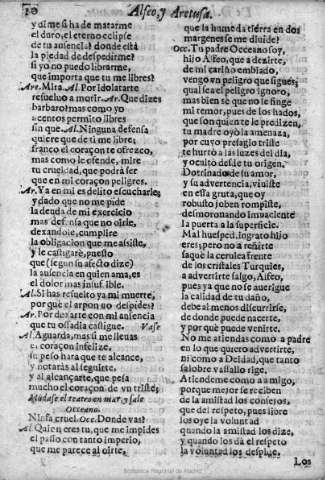 10
Alfeo, y Aretusa.
y si me si ha de matarme
el duro, el eterno eclipse
de tu ausencia? donde està
la piedad de despedirme?
si yo no puedo librarme,
que importa que tu me libres?
Are. Mira. Al. Por Idolatarte
resuelvo a morir. Ar. Que dizes
barbaro! mas como yo
acentos permito libres
sin que. Al. Ninguna defensa
quiere que de ti me libre;
franco el coraçon te ofrezco,
mas como le ofende, mire
tu crueldad, que podrà ser
que en mi coraçon peligres.
Ar. Ya en mi es delito escucharle,
y dado que no me pide
la deuda de mi exercicio
mas defensa que no oirle,
dexandole, cumplire
la obligacion que me assiste,
y le castigarè, puesto
que (segun su afecto dize)
la ausencia en quien ama, es
el dolor mas insufrible.
Al. Si has resuelto ya mi muerte,
por què el arpon no despides?
Ar. Por dexarte con mi ausencia
que tu ossadia castigue. Vase
Al. Aguarda, mas si me llevas
el coraçon infelize,
su peso hara que te alcance,
y notaràs al seguirte,
y al alcançarte, que pesa
mucho el coraçon de vn triste;
Mudase el teatro en mar, y sale
Occeano.
Ninfa cruel. Occ. Donde vas?
Al. Quien eres tu, que me impides
el passo con tanto imperio,
que me parece al oirte,
que la humeda tierra en dos
margenes se me diuide?
Occ. Tu padre Occeano soy,
hijo Alfeo, que a dezirte,
de mi cariño embiado,
vengo en peligro que sigues;
qual sea el peligro ignoro,
mas bien sè que no le finge
mi temor, pues de los hados,
que son quien te le predizen,
tu madre oyò la amenaza,
por cuyo presagio triste
te hurtò a las luzes del dia,
y ocultò desde tu origen.
Dotrinado de su amor,
y su advertencia, viuiste
en essa gruta, que oy
robusto joben rompiste,
desmoronando impaciente
la puerta a la superficie.
Mal huesped, ingrato hijo
eres; pero no a reñirte
saquè la cerulea frente
de los cristales Turquies,
a advertirte salgo, Alfeo,
pues ya que no se auerigue
la calidad de tu daño,
debe al menos discurrirse,
de donde puede nacerte,
y por què puede venirte.
No me atiendas como a padre
en lo que quiero advertirte,
ni como a Deidad, que tanto
salobre vassallo rige.
Atiendeme como a amigo,
porque mejor se reciben
de la amistad los consejos,
que del respeto, pues libre
los oye la voluntad
quando la amistad los dize,
y quando los dà el respeto
la voluntad los despide.
Los
Biblioteca Regional de Madrid